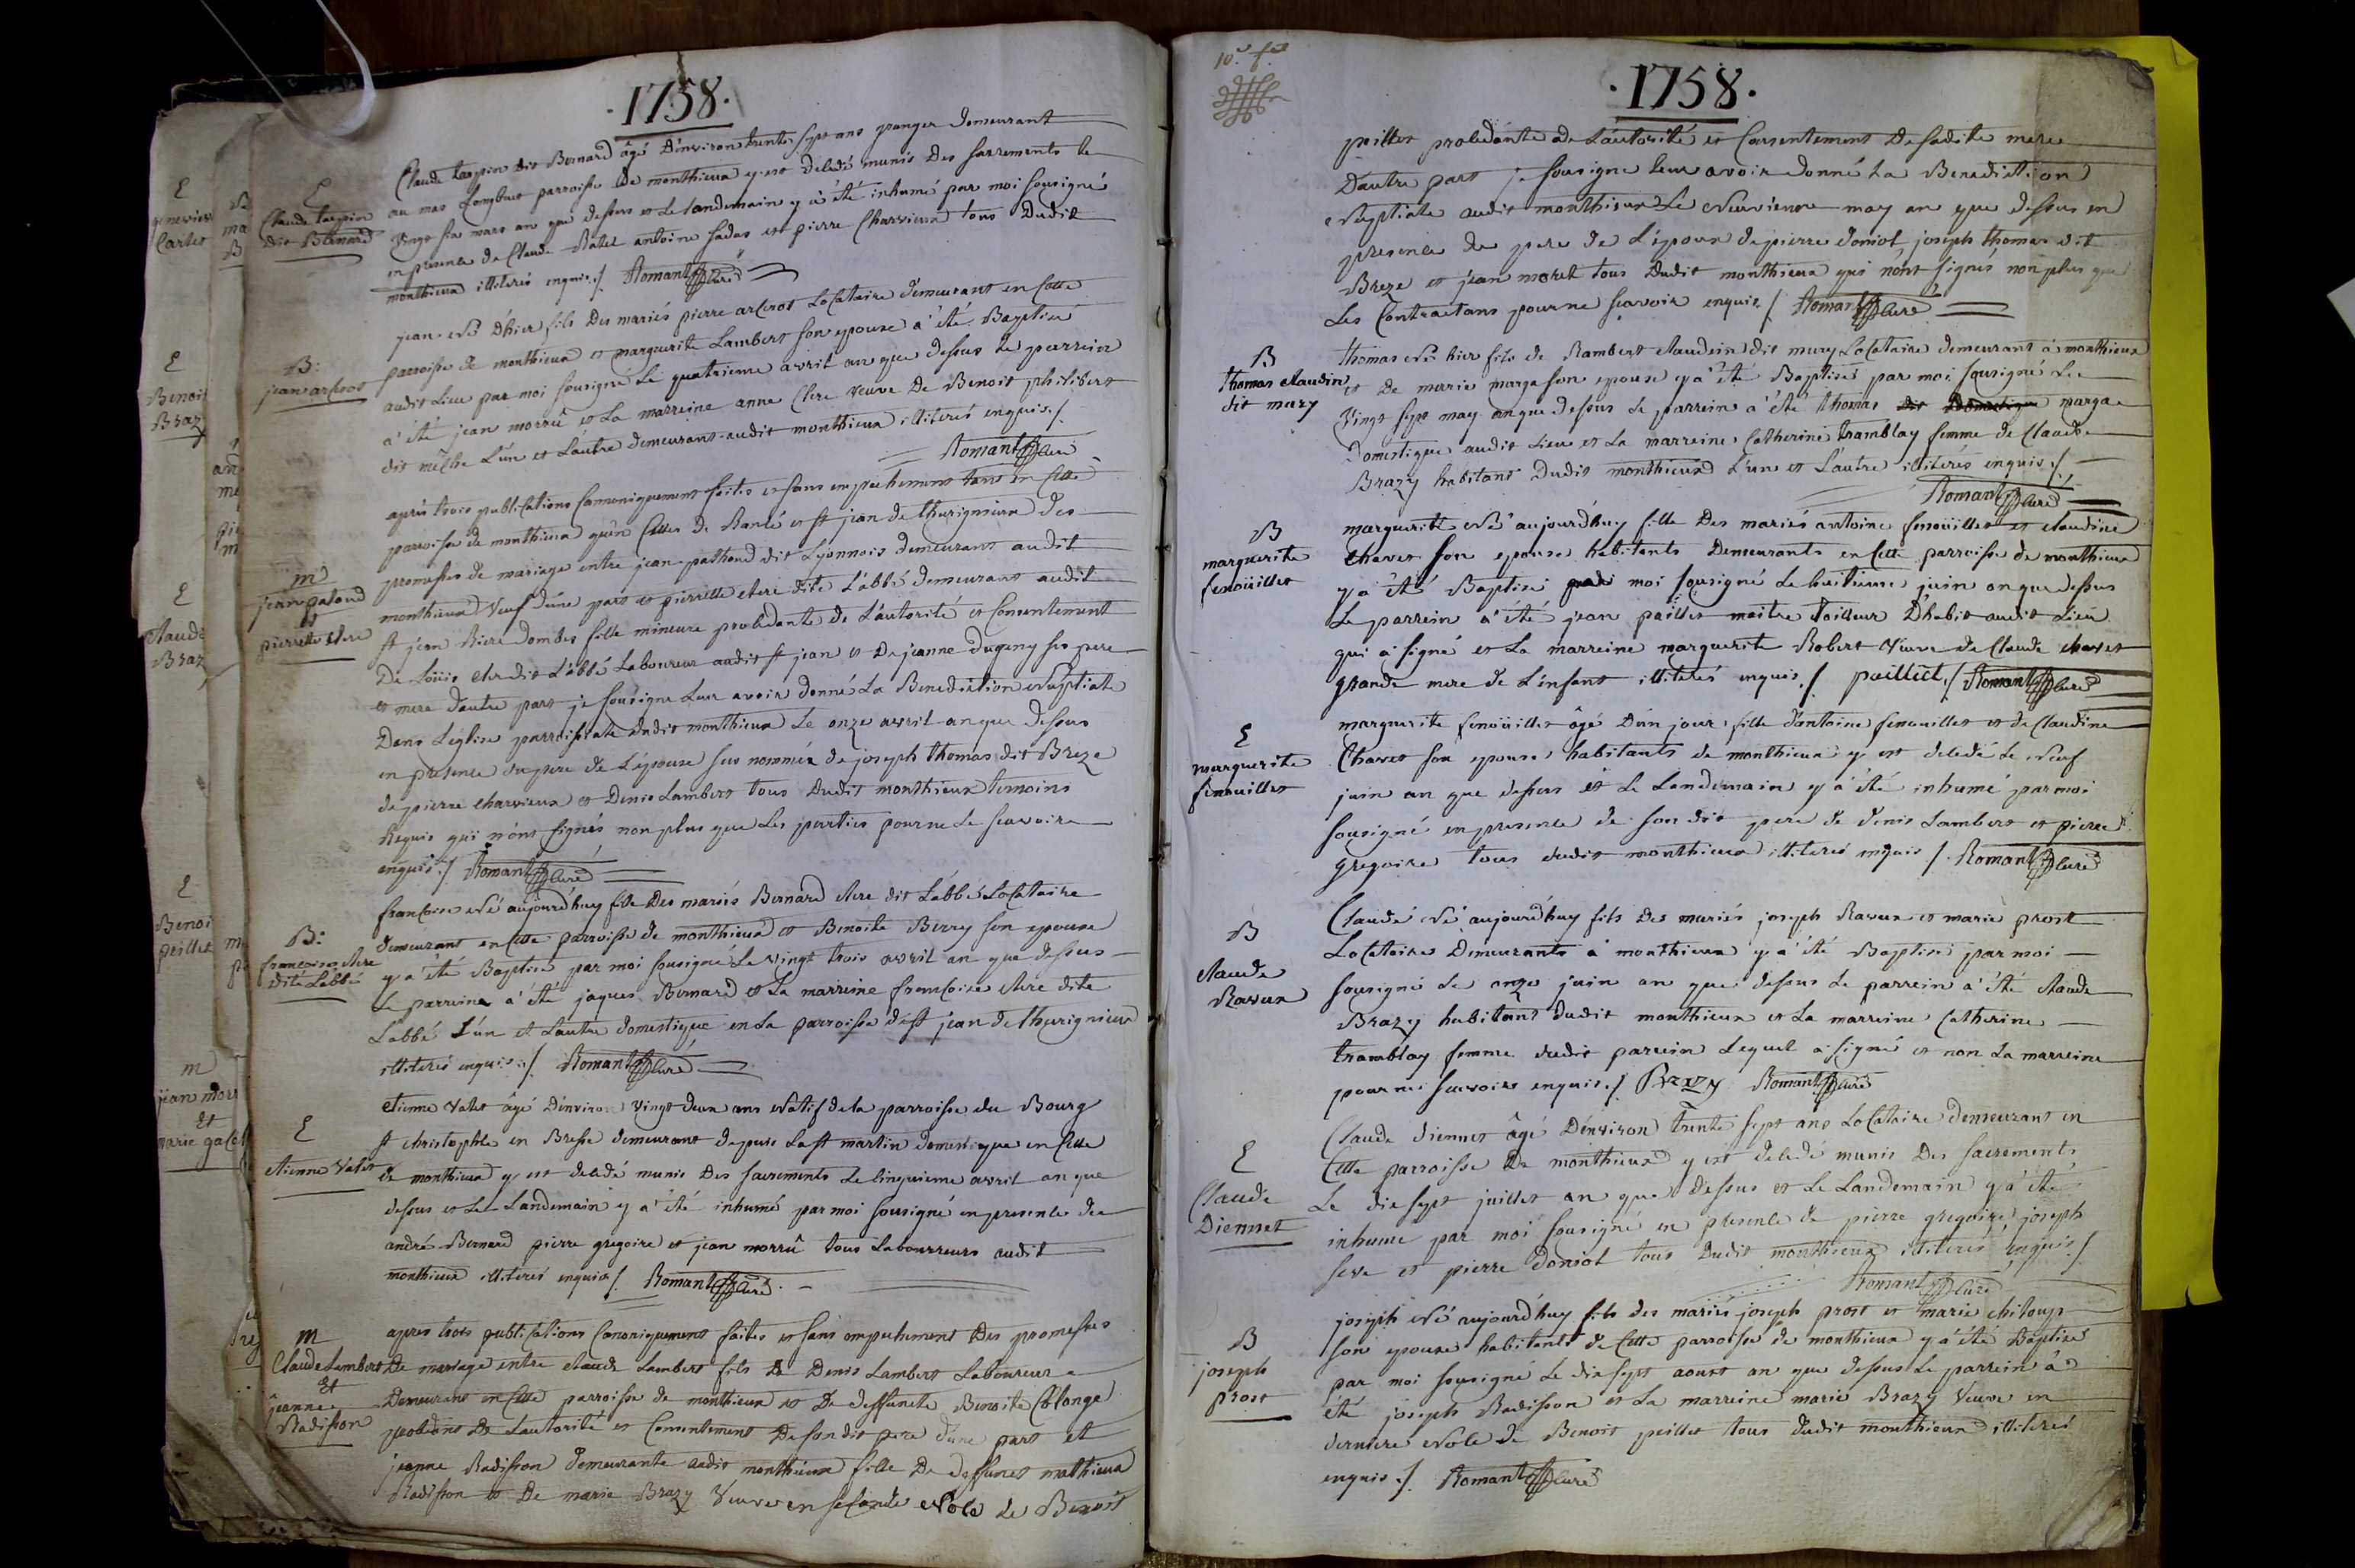 ·1758·
E
Claude taupin
dit Bernard
Claude taupin dit Bernard âgé D'environ trente sept ans granger demeurant
au mas Longbut parroisse de monthieux y est deledé munis Des sacrements le
vingt six mars an que dessus et Le landemain y à été inhumé par moi sousigné
en presence de Claude Ratel antoine sadas et pierre Charvieux tous dudit
monthieux illiterés enquis ./. Romant Curé
B:
jean arcsos
jean Né D'hier fils Des mariés pierre Locataire demeurant en Cette
parroisse de monthieux et marguerite Lambert son epouse à été Baptisé
audit Lieu par moi sousigné Le quatrieme avril an que dessus le parrein
à été jean morrû et La marreine anne Clere veuve De Benoit philibert
dit L'un et L'autre demeurant audit monthieux illiterés enquis ./.
Romant Curé
m
jean patoud
et
pierrette Clere
après trois publications Cannoniquement faites et sans empechement tant en Cette
parroisse de monthieux qu'en Celles de Rancé et st jean de thurignieux des
promesses de mariage entre jean pathoud dit Lyonnois demeurant audit
monthieux Veuf d'une part et pierrette Clere dite L'abbé demeurant audit
st jean Riere dombes fille mineure procedante de L'autorité et Consentement
De Loüis Cler dit L'abbé Laboureur audit st jean et De jeanne Dugeny ses pere
et mere d'autre part je sousigne Leur avoir donné La Benediction Nuptiale
Dans L'eglise parroissiale dudit monthieux Le onze avril an que Dessus
en presence du pere de L'epouse sus nommée de joseph thomas dit Breze
de pierre Charvieux et Denis Lambert tous Dudit monthieux temoins
Requis qui n'ont signés non plus que Les parties pour ne Le scavoire
enquis ./. Romant Curé
B:
francoise Clere
dite Labbé
francoise Né aujourd'huy fille Des mariés Bernard Clere dit L'abbé Locataire
demeurant en Cette parroisse de monthieux et Benoite Berry son epouse
y à été Baptisé par moi sousigné Le vingt trois avril an que dessus
Le parrein à été jaques Bernard et La marreine francoise Clere dite
Labbé L'un et L'autre domestique en La parroisse de st jean de thurignieux
illiterés enquis ./. Romant Curé
E
etienne Valet
etienne Valet âgé D'environ vingt deux ans Natif de la parroisse du Bourg
st christophle en Bresse demeurant depuis La st martin domestique en Cette
de monthieux y est deledé munis Des sacrements Le Cinquieme avril an que
dessus et Le Landemain y à été inhumé par moi sousigné en presence de
andré Bernard pierre gregoire et jean morrû tous Labourreurs audit
monthieux illiterés enquis ./. Romant Curé
m
Claude Lambert
Et
jeanne
Radisson
apres trois publications Canoniquement faites et sans empechement Des promesses
De mariage entre Claude Lambert fils De Denis Lambert Laboureur
Demeurant en Cette parroisse de monthieux et De deffuncte Benoite Colonge
procedant De L'autorité et Consentement De son dit pere d'une part et
jeanne Radisson demeurante audit monthieux fille De deffunct mathieux
Radisson et De marie Brazy Veuve en seconde Noce de Benoit
E
Benoit
Brazy
E
Claude
Braz
E
Benoi
peillet
m
jean mor
Et
marie
10e. f.
·1758·
peillet procedante De L'autorité et Consentement De sadite mere
D'autre part je sousigne leur avoir donné La Benediction
Nuptiale audit monthieux Le Neuvieme may an que dessus en
presence du pere de L'epoux de pierre doniol, joseph thomas dit
Breze et jean moret tous Dudit monthieux qui n'ont signés non plus que
Les Contractans pour ne scavoir enquis ./. Romant Curé
B
thomas Claudin
dit mury
thomas Né hier fils de Rambert Claudin dit mury Locataire demeurant à monthieux
et De marie marga son epouse y à été Baptisé par moi sousigné Le
vingt sept may an que dessus Le parrein à été thomas marga
Domestique audit Lieu et La marreine Catherine tramblay femme de Claude
Brazy habitant Dudit monthieux L'un et L'autre illiterés enquis ./.
Romant Curé
B
marguerite
fenoüillet
marguerite Né aujourd'huy fille Des mariés antoine fenoüillet et Claudine
Chavet son epouse habitants Demeurants en Cette parroisse de monthieux
y à été Baptisé par moi sousigné Le huitieme juin an que dessus
Le parrein à été jean peillet maitre tailleur D'habit audit Lieu
qui à signé et La marreine marguerite Robert Veuve de Claude Chavet
grande mere de L'enfant illiteré enquis ./. peilliet ./. Romant Curé
E
marguerite
fenouillet
marguerite fenoüillet âgé D'un jour fille d'antoine fenouillet et de Claudine
Chavet son epouse habitants de monthieux y est deledé Le Neuf
juin an que dessus et Le Landemain y à été inhumé par moi
sousigné en presence de son dit pere de denis Lambert et pierre
gregoire tous dudit monthieux illiterés enquis ./. Romant Curé
B
Claude
Raveux
Claude Né aujourd'huy fils Des mariés joseph Raveux et marie prost
Locataires Demeurants à monthieux y à été Baptisé par moi
sousigné Le onze juin an que dessus Le parrein à été Claude
Brazy habitant dudit monthieux et La marreine Catherine
tramblay femme dudit parrein Lequel à signé et non La marreine
pour ne scavoir enquis ./. Brazy Romant Curé
E
Claude
Diennet
Claude diennet âgé D'environ trente sept ans Locataire demeurant en
Cette parroisse De monthieux y est deledé munis Des sacrements
Le dix sept juillet an que Dessus et Le Landemain y à été
inhumé par moi sousigné en presence de pierre gregoire, joseph
seve et pierre doniol tous Dudit monthieux illiterés enquis ./.
Romant Curé
B
joseph
prost
joseph Né aujourd'huy fils des mariés joseph prost et marie chiloup
son epouse habitants de Cette parroisse de monthieux y à été Baptisé
par moi sousigné Le dix sept aoust an que dessus Le parrein à
été joseph Radisson et La marreine marie Brazy Veuve en
derniere Nole de Benoit peillet tous dudit monthieux illiterés
enquis ./. Romant Curé